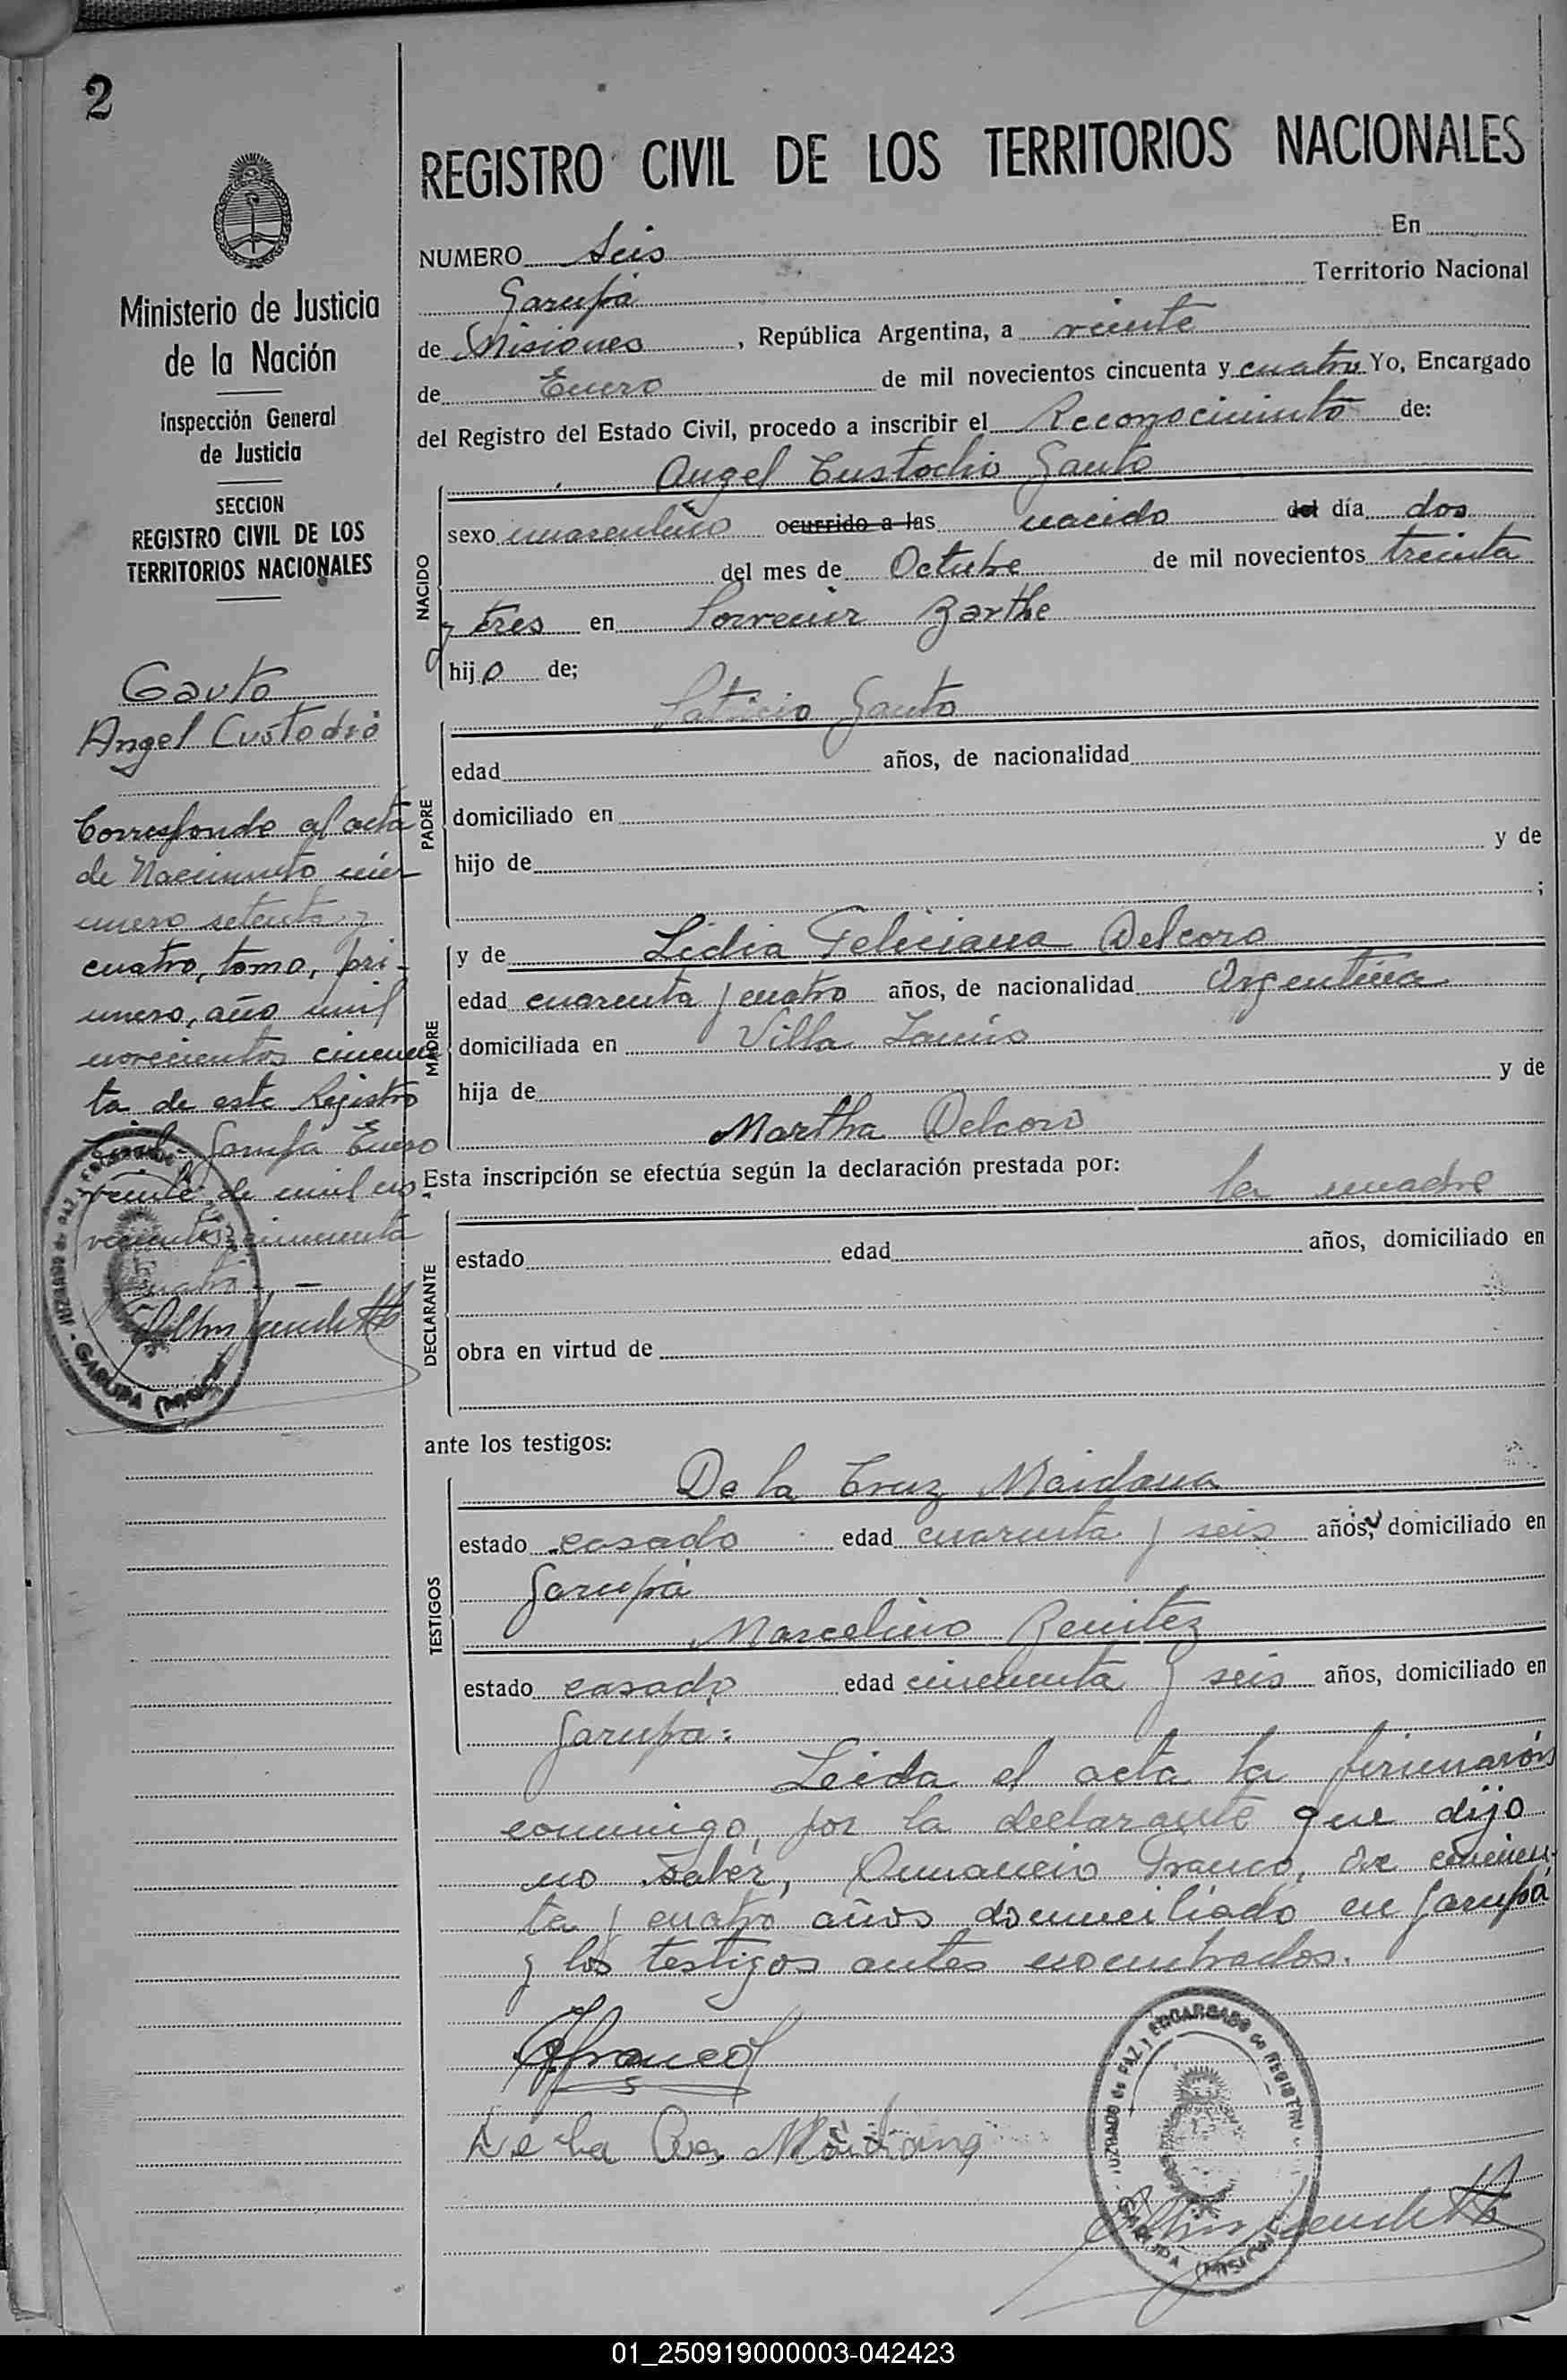 2
Ministerio de Justicia
de la Nación
Inspección General
de Justicia
SECCION
REGISTRO CIVIL DE LOS
TERRITORIOS NACIONALES
Gauto
Angel Custodio
Corresponde al acta
de Nacimiento nú-
mero setenta y
cuatro, tomo, pri-
mero, año mil
novecientos cincuen
ta de este Registro
Garupa Enero
veinte de mil no-
vecientos cincuenta
cuatro. —
REGISTRO CIVIL DE LOS TERRITORIOS NACIONALES
NUMERO Seis En
Garupá Territorio Nacional
de Misiones , República Argentina, a veinte
de Enero de mil novecientos cincuenta y cuatro Yo, Encargado
del Registro del Estado Civil, procedo a inscribir el Reconocimiento de:
Angel Custodio Gauto
NACIDO
sexo masculino ocurrido a las nacido del día dos
del mes de Octubre de mil novecientos treinta
y tres en Porvenir Barthe
hijo de;
PADRE
Patricio Gauto
edad años, de nacionalidad
domiciliado en
hijo de y de
;
MADRE
y de Lidia Feliciana Delcoro
edad cuarenta y cuatro años, de nacionalidad Argentina
domiciliada en Villa Lanús
hija de y de
Martha Delcoro
Esta inscripción se efectúa según la declaración prestada por:
la madre
DECLARANTE
estado edad años, domiciliado en
obra en virtud de
ante los testigos:
TESTIGOS
De la Cruz Maidana
estado casado edad cuarenta y seis años, domiciliado en
Garupá
Marcelino Benitez
estado casado edad cincuenta y seis años, domiciliado en
Garupá.
Leída el acta la firmarón
conmigo, por la declarante que dijo
no saber, Amancio Franco, de cincuen-
ta y cuatro años domiciliado en Garupá
y los testigos antes nombrados.
AFranco
De la Cruz Maidana
JUZGADO de PAZ y ENCARGADO de REGISTRO
GARUPA (MISIONES)
01_250919000003-042423